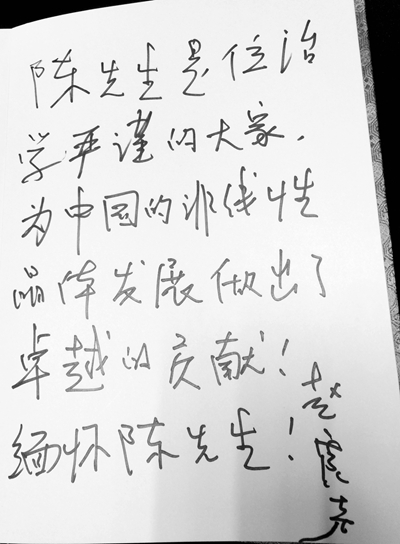 陈先生是位治
学严谨的大家,
为中国的非线性
晶体发展做出了
卓越的贡献!
缅怀陈先生!
赵